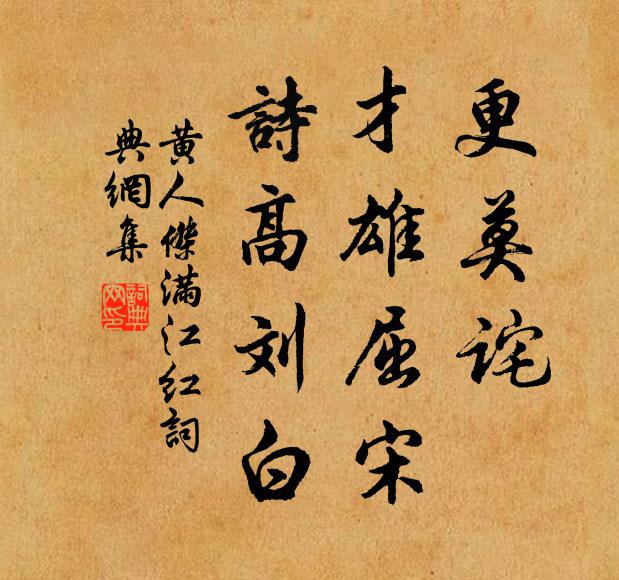 更莫詫
才雄屈宋
詩高刘白
黄人傑满江红詞
典網集
詞典
网印